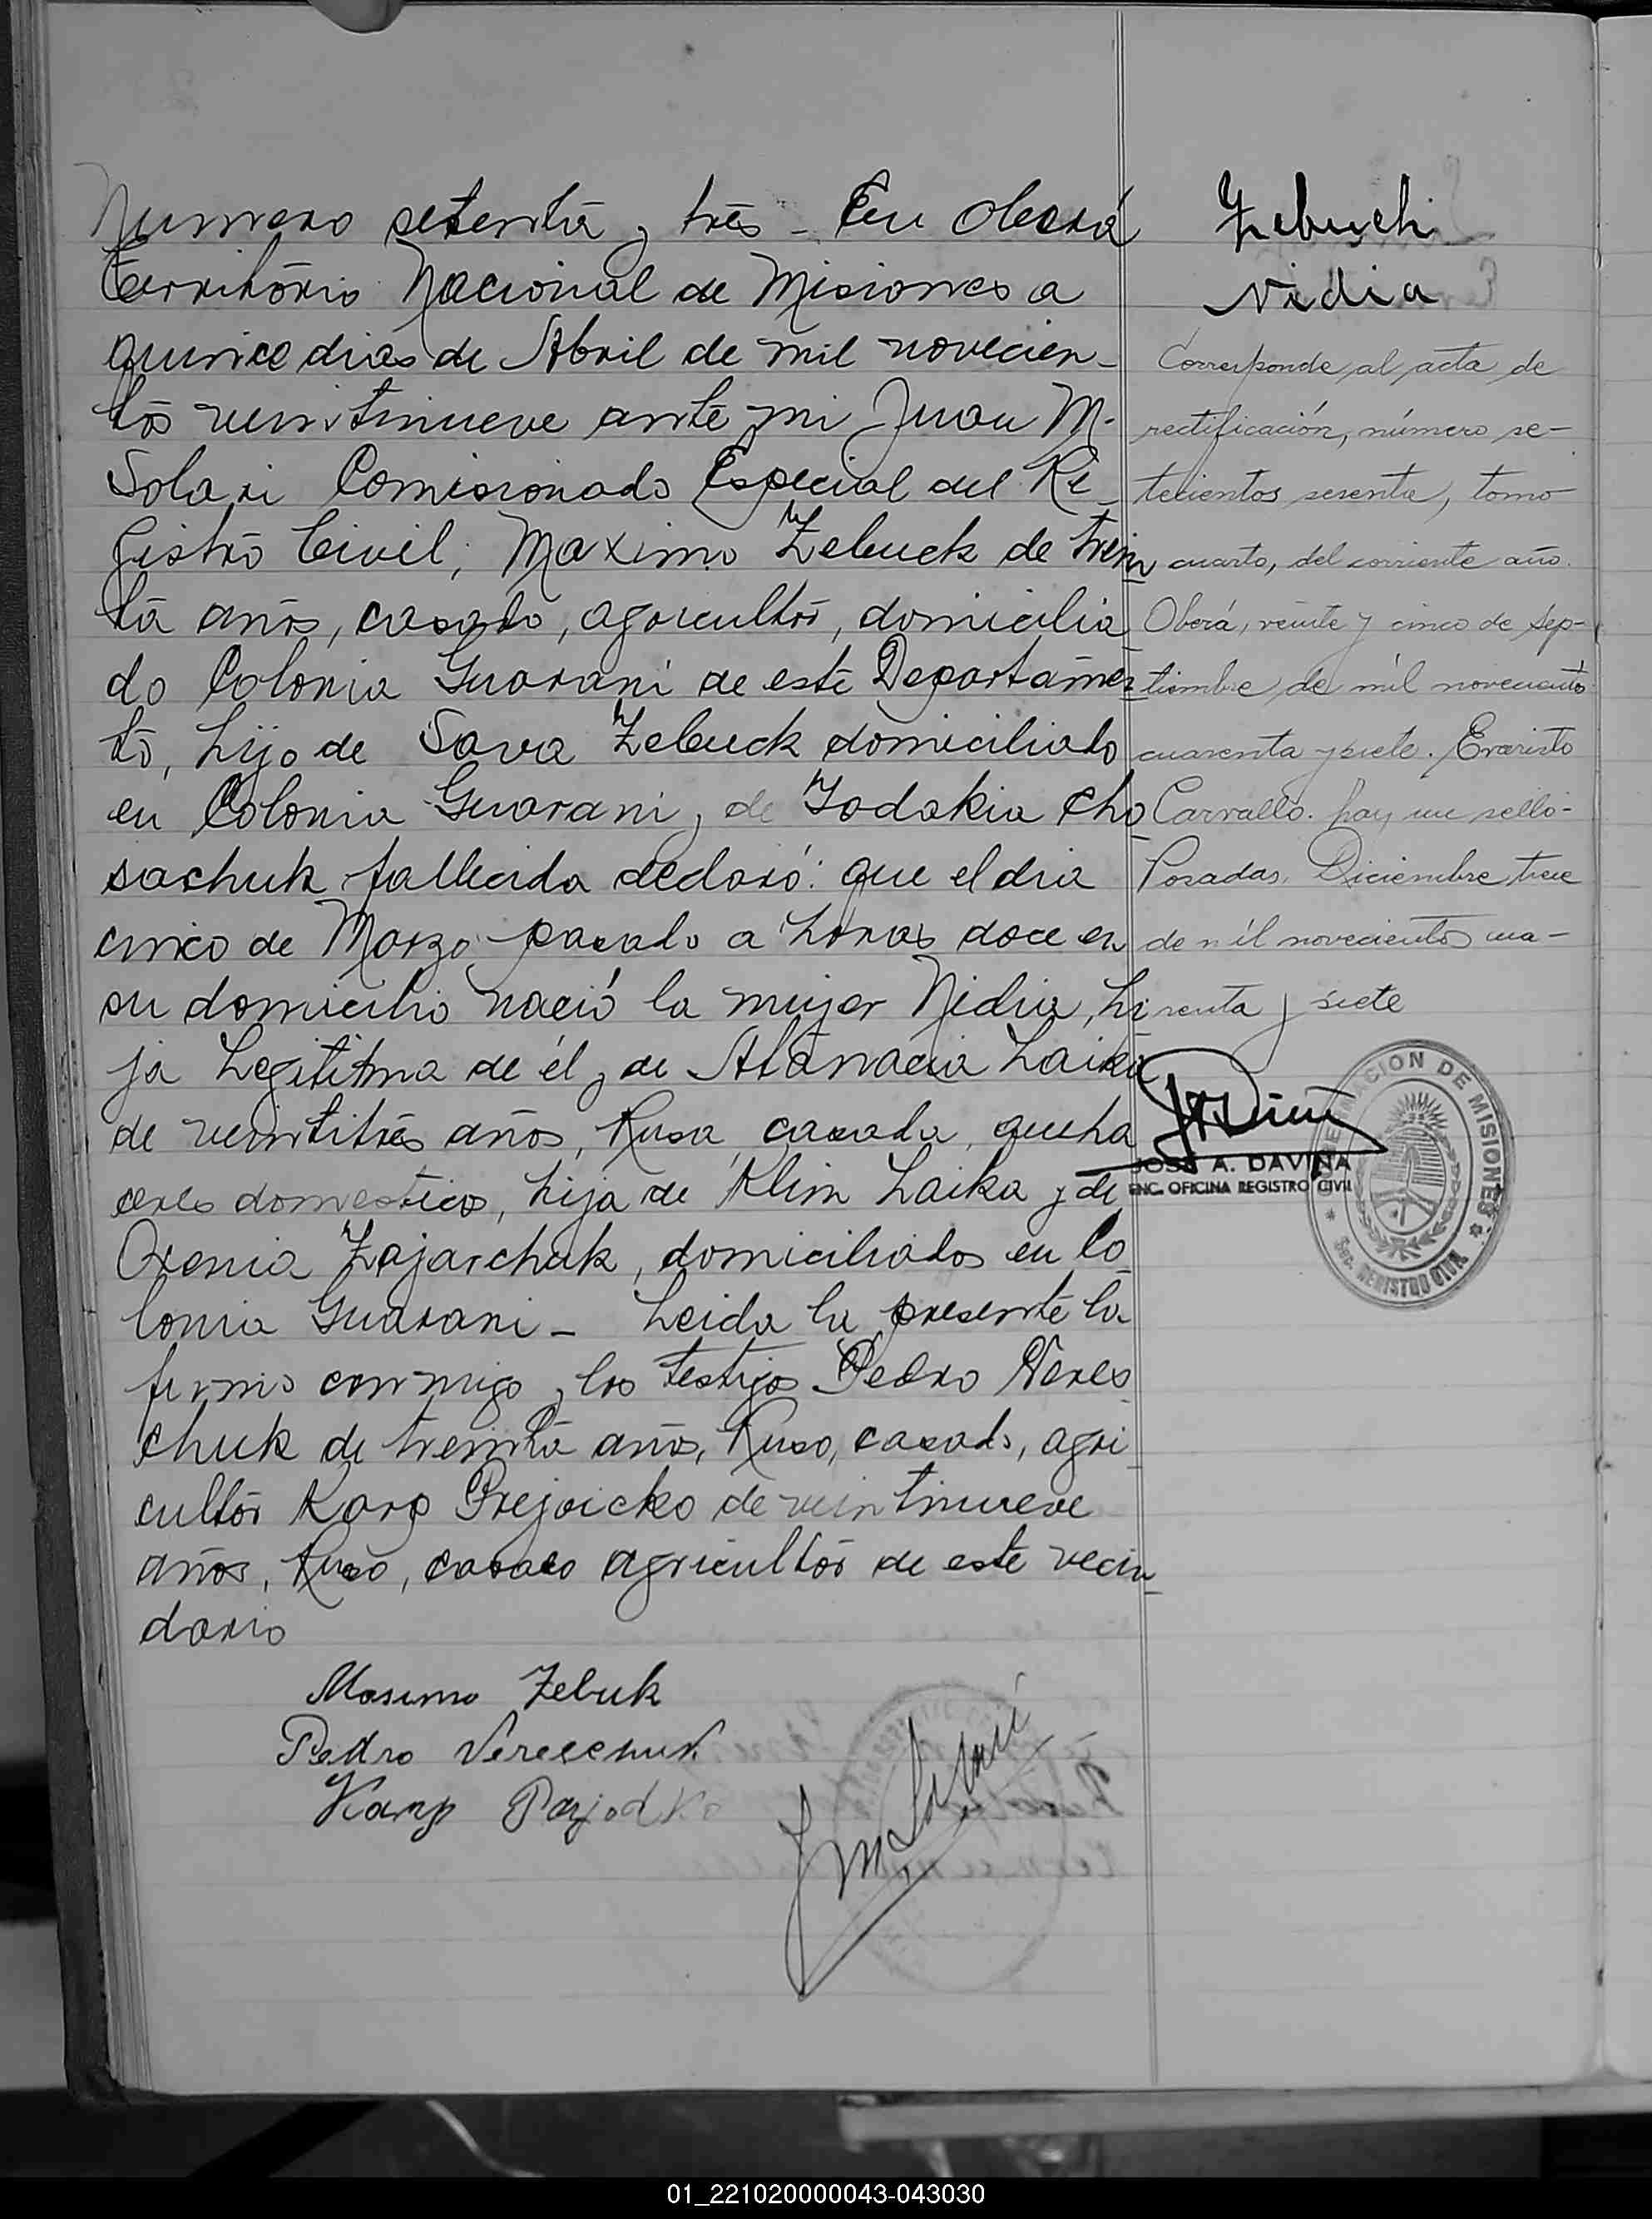 Numero setenta y tres - En Oberá
Territorio Nacional de Misiones a
quince dias de Abril de mil novecien-
tos veintinueve ante mi Juan M.
Solari Comisionado Especial del Re-
gistro Civil; Maximo Zebuck de trein
ta años, casado, agricultor, domicilia
do Colonia Guarani de este Departamen-
to, hijo de Sava Zebuck domiciliado
en Colonia Guarani y de Zodokia Cho
sachuk fallecida declaró: que el dia
cinco de Marzo pasado a horas doce en
su domicilio nació la mujer Nidia, hi
ja Legititma de él y de Atanacia Laika
de veintitrés años, Rusa, casada, queha
ceres domesticos, hija de Klim Laika y de
Oxenia Zajarchuk, domiciliados en Co-
lonia Guarani - Leida la presente la
firmó conmigo y los testigos Pedro Veres
chuk de treinta años, Ruso, casado, agri
cultor Karp de veintinueve
años, Ruso, casado agricultor de este vecin-
dario
Masimo Zebuk
Pedro
Karp
Zebuch
Nidia
Corresponde al acta de
rectificación, número se-
tecientos sesenta, tomo
cuarto, del corriente año.
Oberá, veinte y cinco de sep-
tiembre de mil novecientos
cuarenta y siete. Evaristo
Carvallo. hay un sello-
Posadas, Diciembre trece
de mil novecientos cua-
renta y siete
JOSE A. DAVIÑA
ENC. OFICINA REGISTRO CIVIL
GOBERNACION DE MISIONES
Sec. REGISTRO CIVIL
01_221020000043-043030